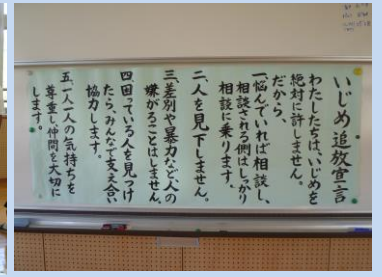 いじめ追放宣言
わたしたちは、いじめを
絶対に許しません。
だから、
一、悩んでいれば相談し、
相談される側はしっかり
相談に乗ります。
二、人を見下しません。
三、差別や暴力など、人の
嫌がることはしません。
四、困っている人を見つけ
たら、みんなで支え合い
協力します。
五、一人一人の気持ちを
尊重し仲間を大切に
します。